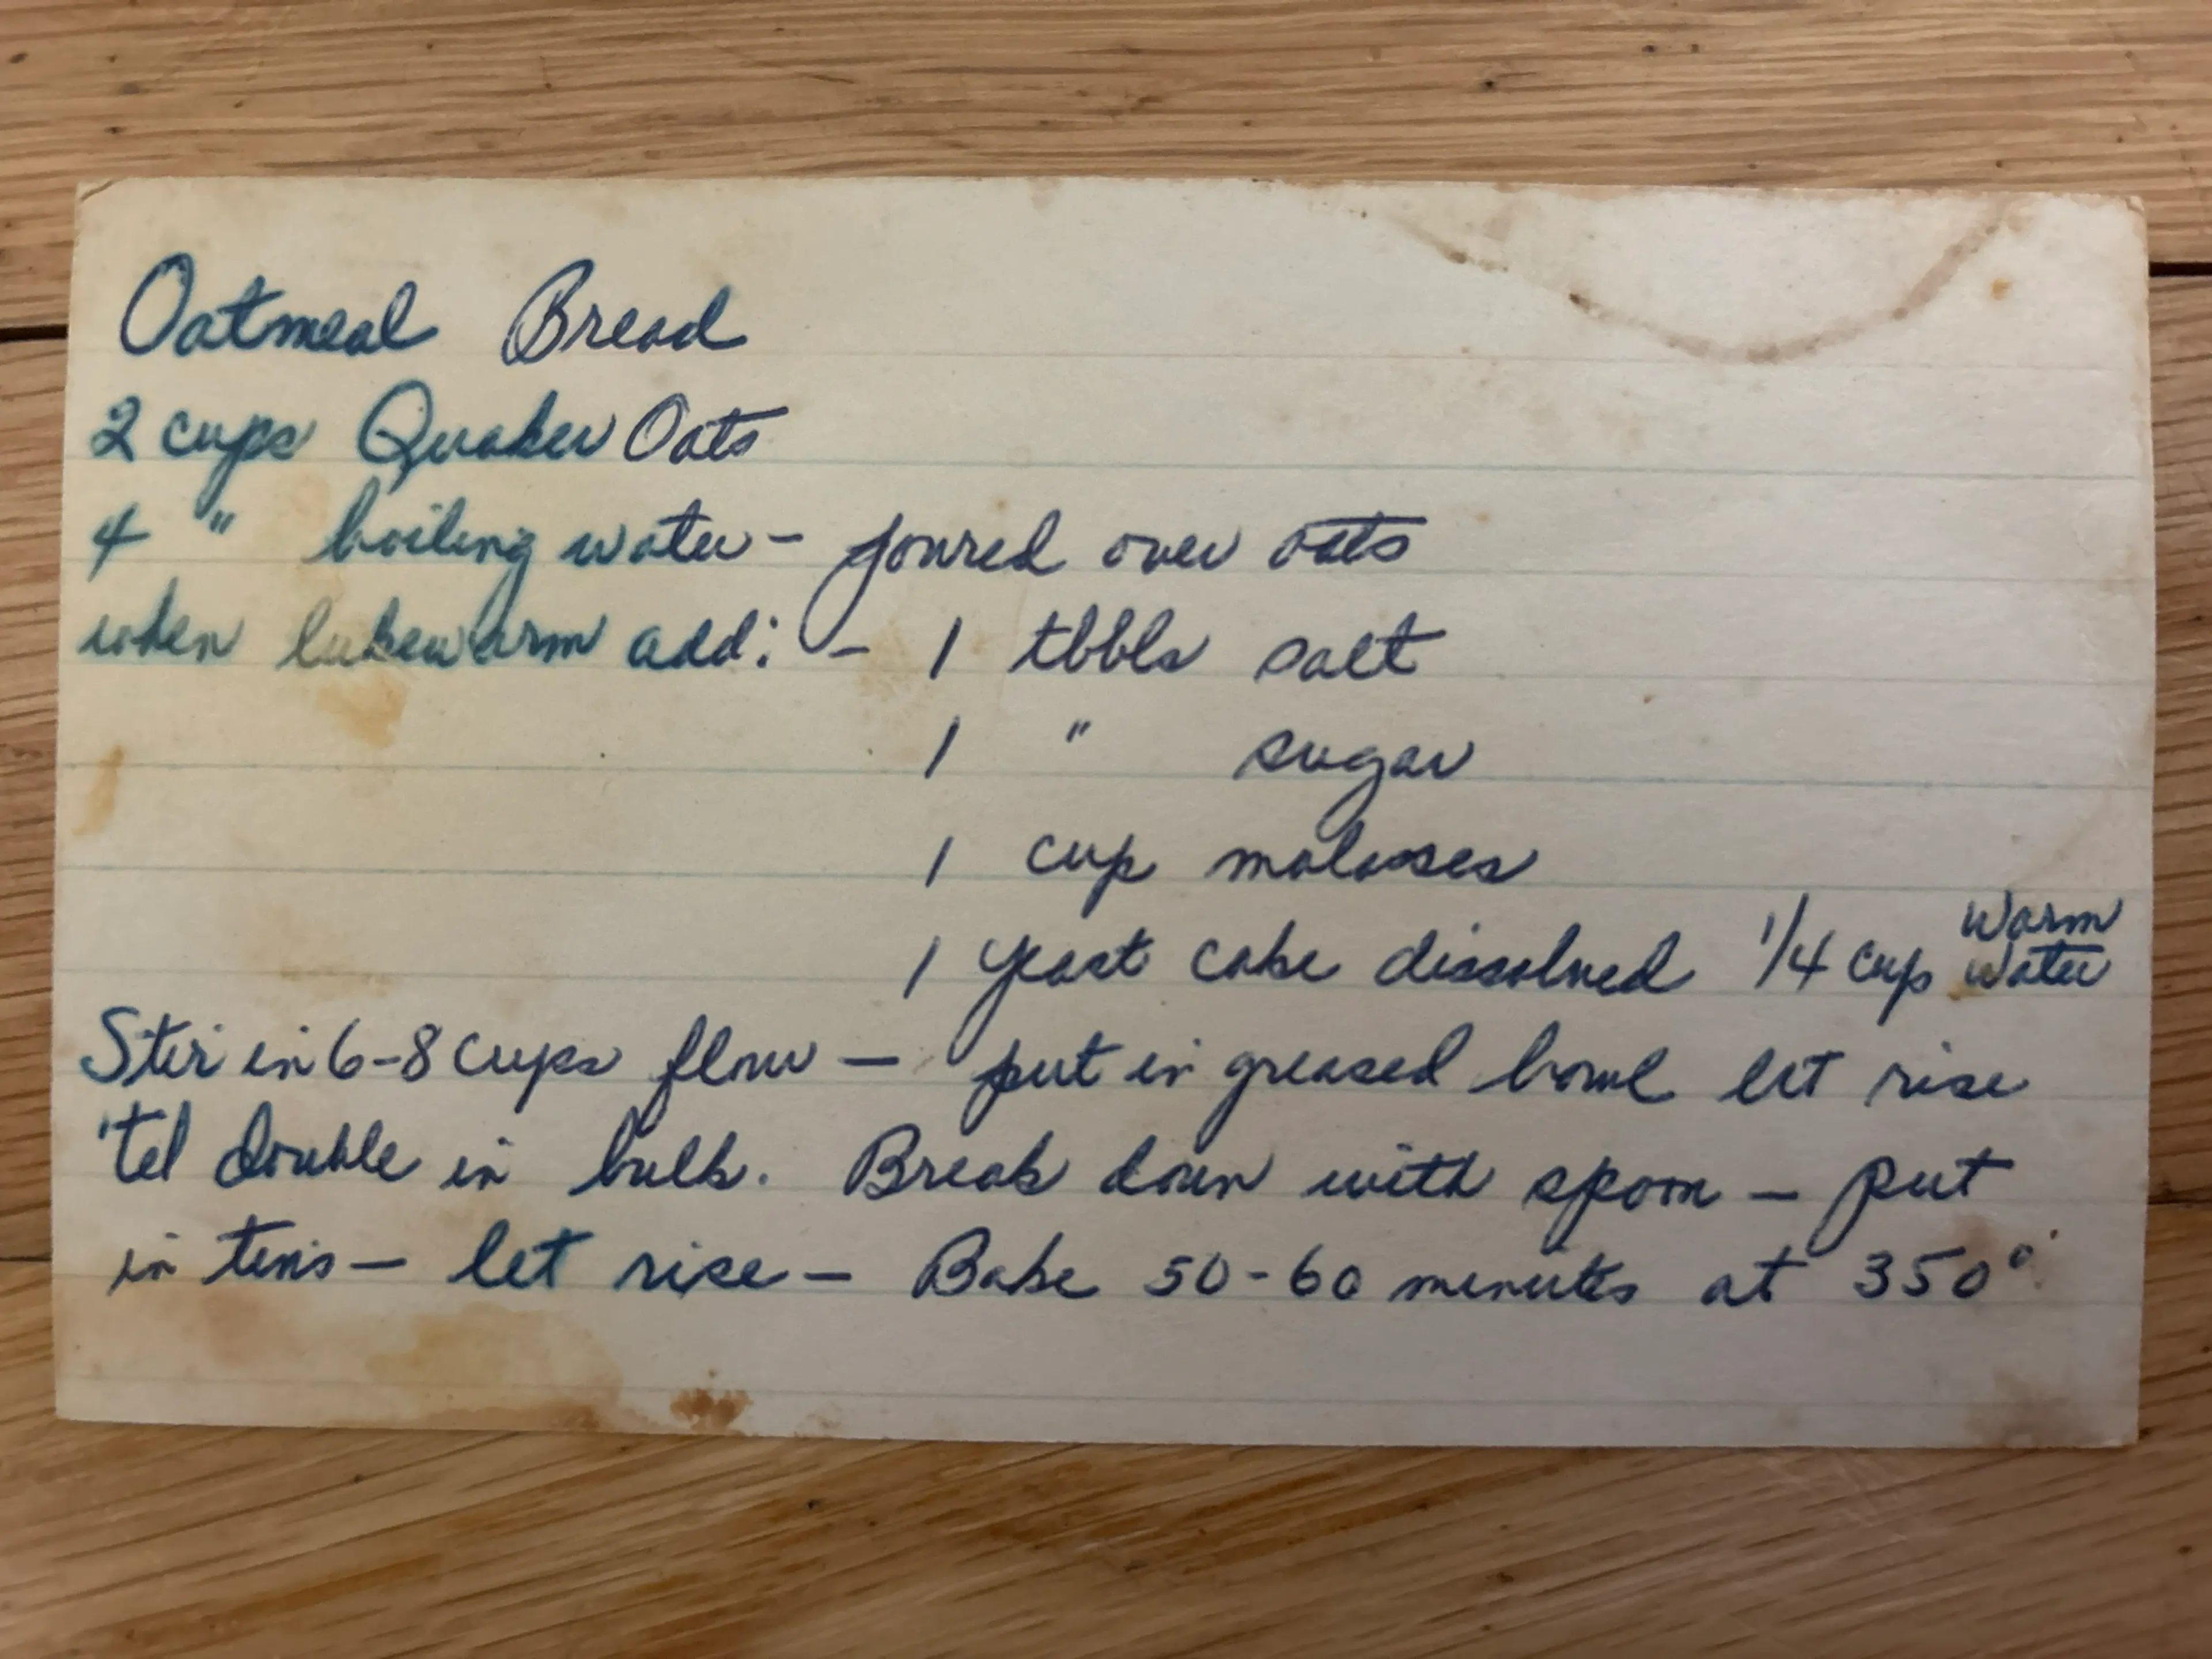 Oatmeal Bread
2 cups Quaker Oats
4 " boiling water - poured over oats
when lukewarm add: - 1 tbbls salt
1 " sugar
1 cup molasses
1 yeast cake dissolved 1/4 cup warm water
Stir in 6-8 cups flour - put in greased bowl let rise
'til double in bulk. Break down with spoon - put
in tins - let rise - Bake 50-60 minutes at 350°